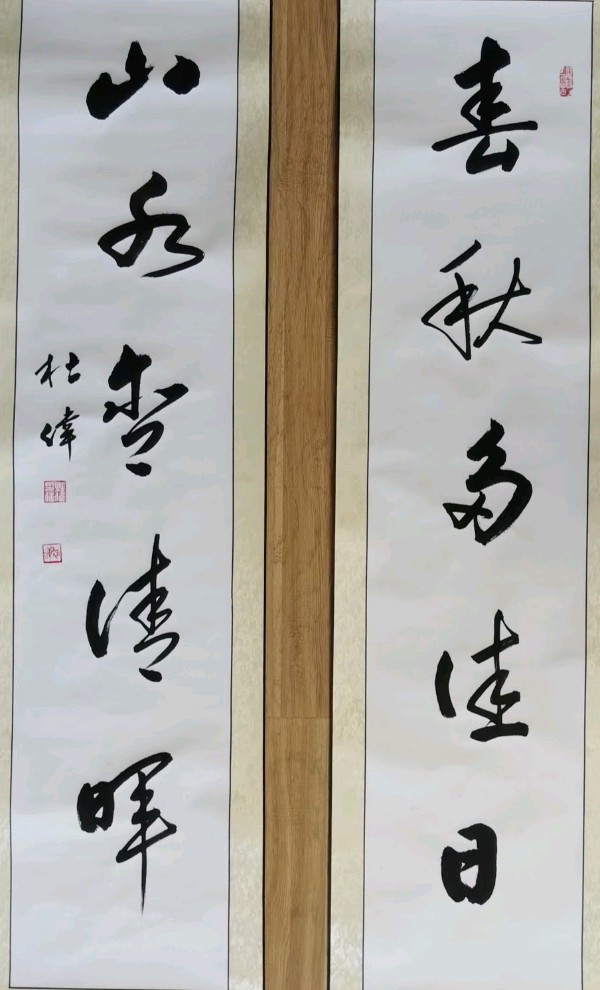 春秋多佳日
山水清暉
杜偉